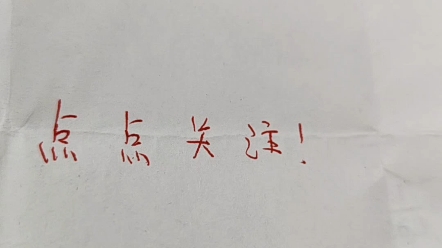 点点关注!